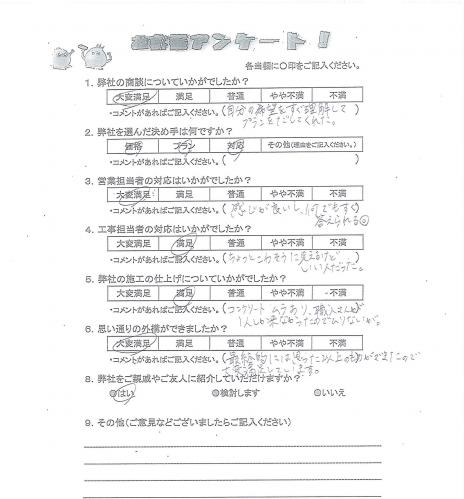 お客様アンケート！
各当欄に〇印をご記入ください。
1. 弊社の商談についていかがでしたか?
大変満足 満足 普通 やや不満 不満
・コメントがあればご記入ください。(自分の希望をすぐ理解して
プランをだしてくれた。)
2. 弊社を選んだ決め手は何ですか?
価格 プラン 対応 その他(理由をご記入ください。)
・コメントがあればご記入ください。( )
3. 営業担当者の対応はいかがでしたか?
大変満足 満足 普通 やや不満 不満
・コメントがあればご記入ください。(感じが良いし、何でもすぐ
答えられる)
4. 工事担当者の対応はいかがでしたか?
大変満足 満足 普通 やや不満 不満
・コメントがあればご記入ください。(ちょっとこわそうに見えるけど
いい人だった。)
5. 弊社の施工の仕上げについていかがでしたか?
大変満足 満足 普通 やや不満 不満
・コメントがあればご記入ください。(コンクリート ムラあり、職人さんが
1人しか来なかったので
6. 思い通りの外構ができましたか?
大変満足 満足 普通 やや不満 不満
・コメントがあればご記入ください。(最終的には思った以上のものができたので
大変満足しています。)
8. 弊社をご親戚やご友人に紹介していただけますか?
◎はい ◎検討します ◎いいえ
9. その他(ご意見などございましたらご記入ください)